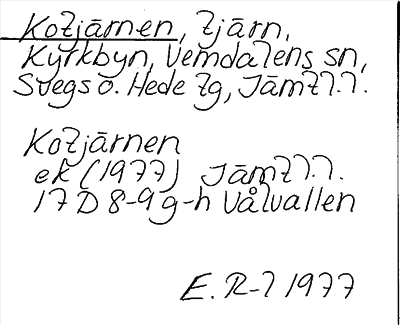 Kotjärnen, tjärn,
Kyrkbyn, Vemdalens sn,
Svegs o. Hede tg, Jämtl.l.
Kotjärnen
ek (1977) Jämtl.l.
17 D 8-9 g-h Vålvallen
E. R-l 1977